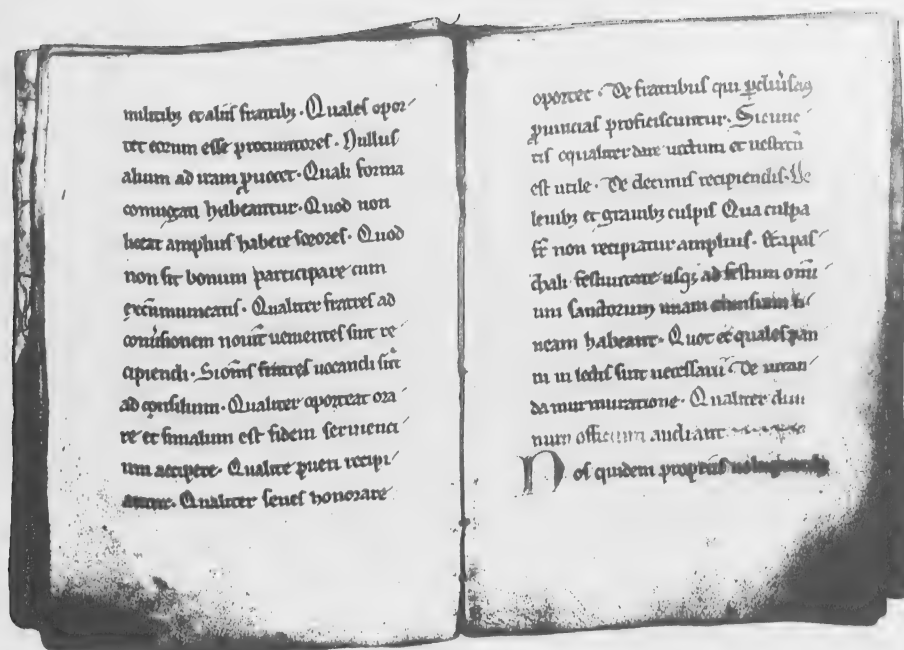 militibꝫ et aliis fratribꝫ. Quales opor
tet eorum esse procuratores. Nullus
alium ad iram ꝓuocet. Quali forma
coniugati habeantur. Quod non
liceat amplius habere sorores. Quod
non sit bonum participare cum
Qualiter fratres ad
uenientes sint re
cipiendi. Si om̄s fratres uocandi sūt
ad consilium. Qualiter oporteat ora
re et firmatum est fidem
um accipere. Qualitꝰ pueri recipi
antur. Qualiter senes honorare
oportet. De fratribus qui ꝑ diũsas
ꝓuincias proficiscuntur.
equaliter dare uictum et uestitū
est utile. De decimis recipiendis. De
leuibꝫ et grauibꝫ culpis Qua culpa
fr̄ non recipiatur amplius. Et a pas
chali festiuitate usqꝫ ad festum om̄i
um sanctorum unam camisiam li
neam habeant. Quot et quales pan
ni in lectis sint necessarii. De uitan
da murmuratione. Qualiter diui
num officium audiant
Nos quidem